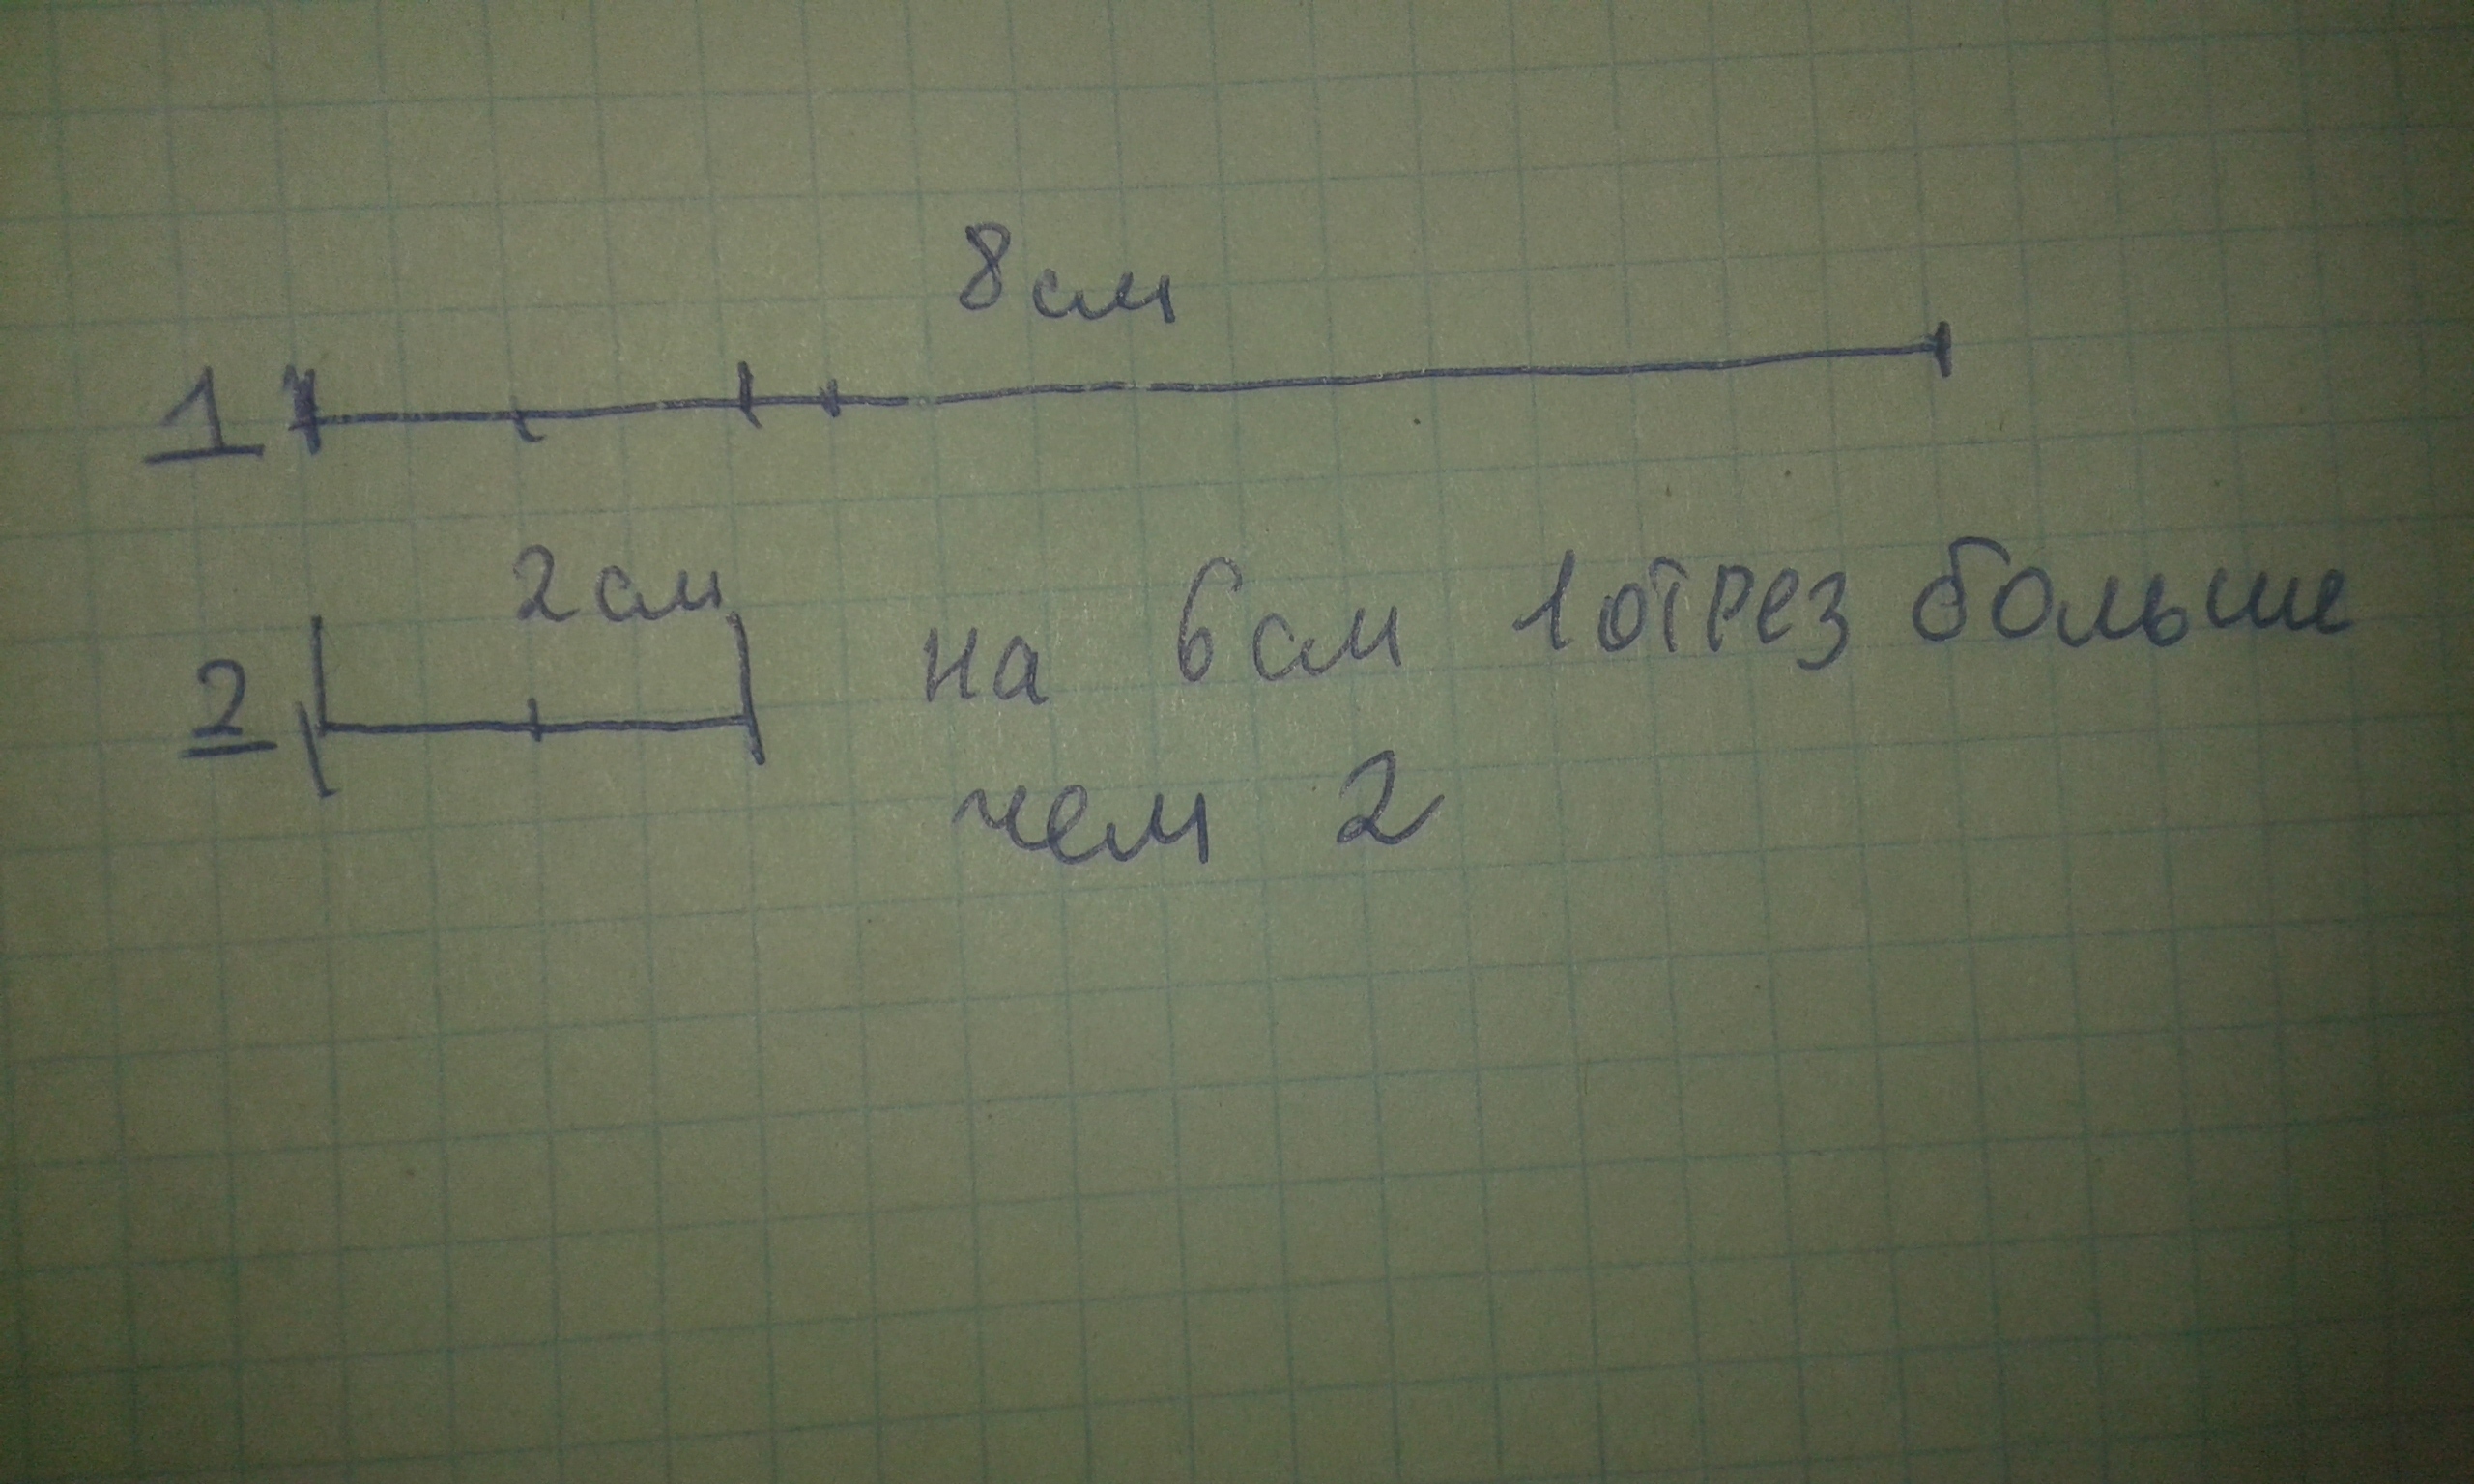 8см
1
2см
2
на 6см 1отрез больше
чем 2